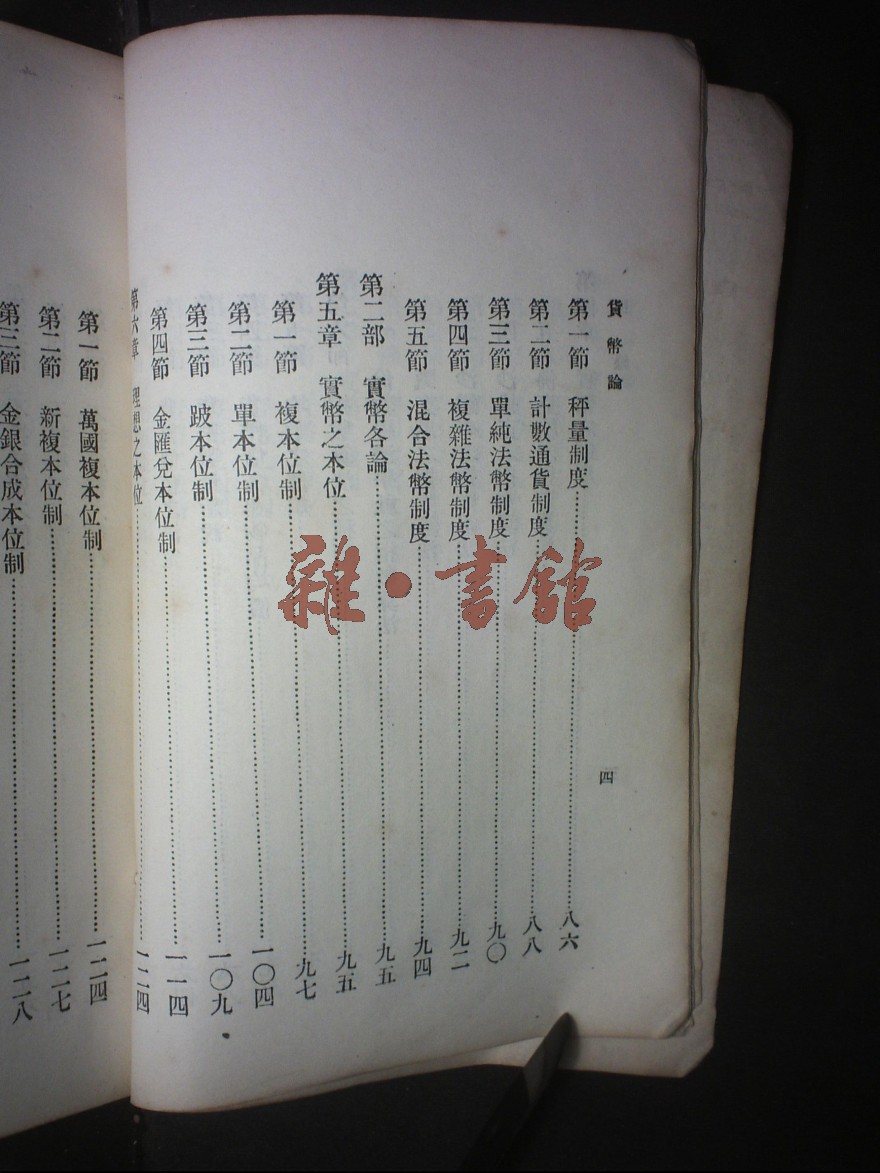 貨幣論
四
第一節 秤量制度……八六
第二節 計數通貨制度……八八
第三節 單純法幣制度……九〇
第四節 複雜法幣制度……九二
第五節 混合法幣制度……九四
第二部 實幣各論……九五
第五章 實幣之本位……九五
第一節 複本位制……九七
第二節 單本位制……一〇四
第三節 跛本位制……一〇九
第四節 金匯兌本位制……一一四
第六章 理想之本位……一二四
第一節 萬國複本位制……一二四
第二節 新複本位制……一二七
第三節 金銀合成本位制……一二八
雜·書館